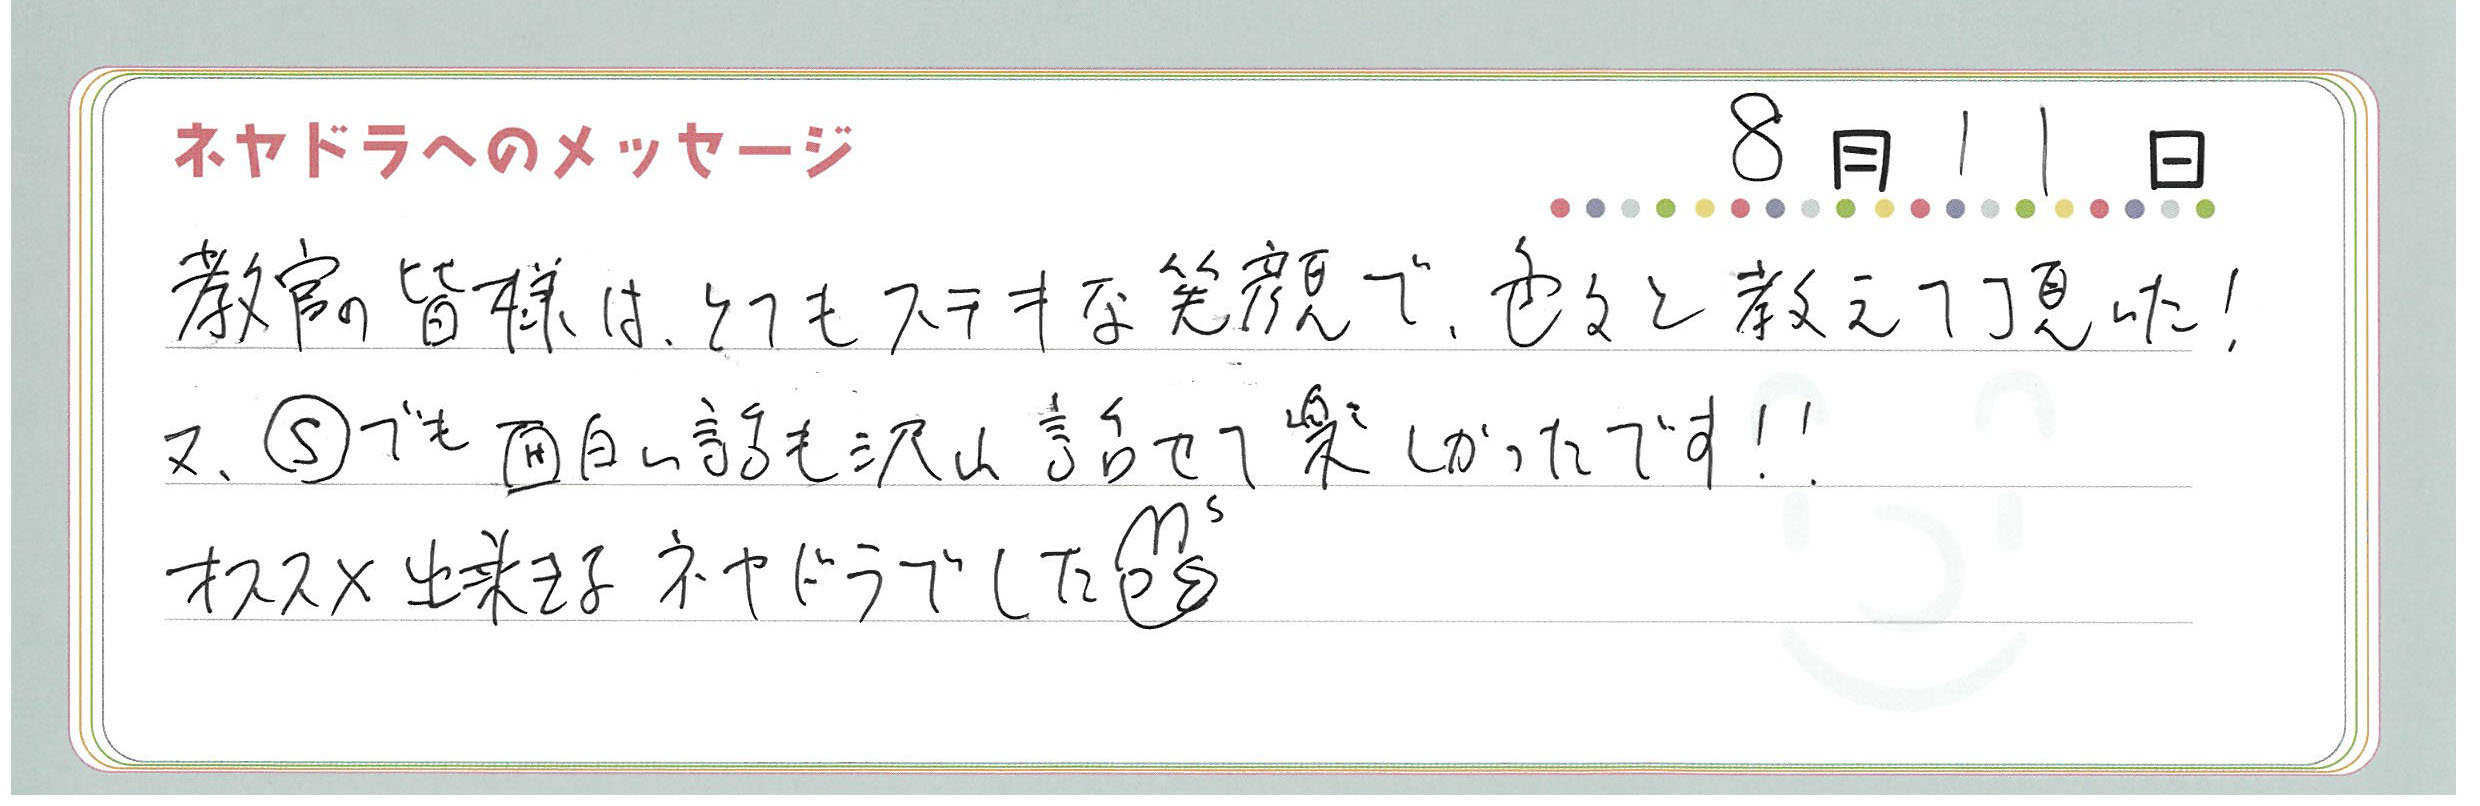 ネヤドラへのメッセージ
8月11日
教官の皆様は、とてもステキな笑顔で、色々と教えて頂いた!
又、Ⓢでも面白い話も沢山話せて楽しかったです!!
オススメ出来る ネヤドラでした